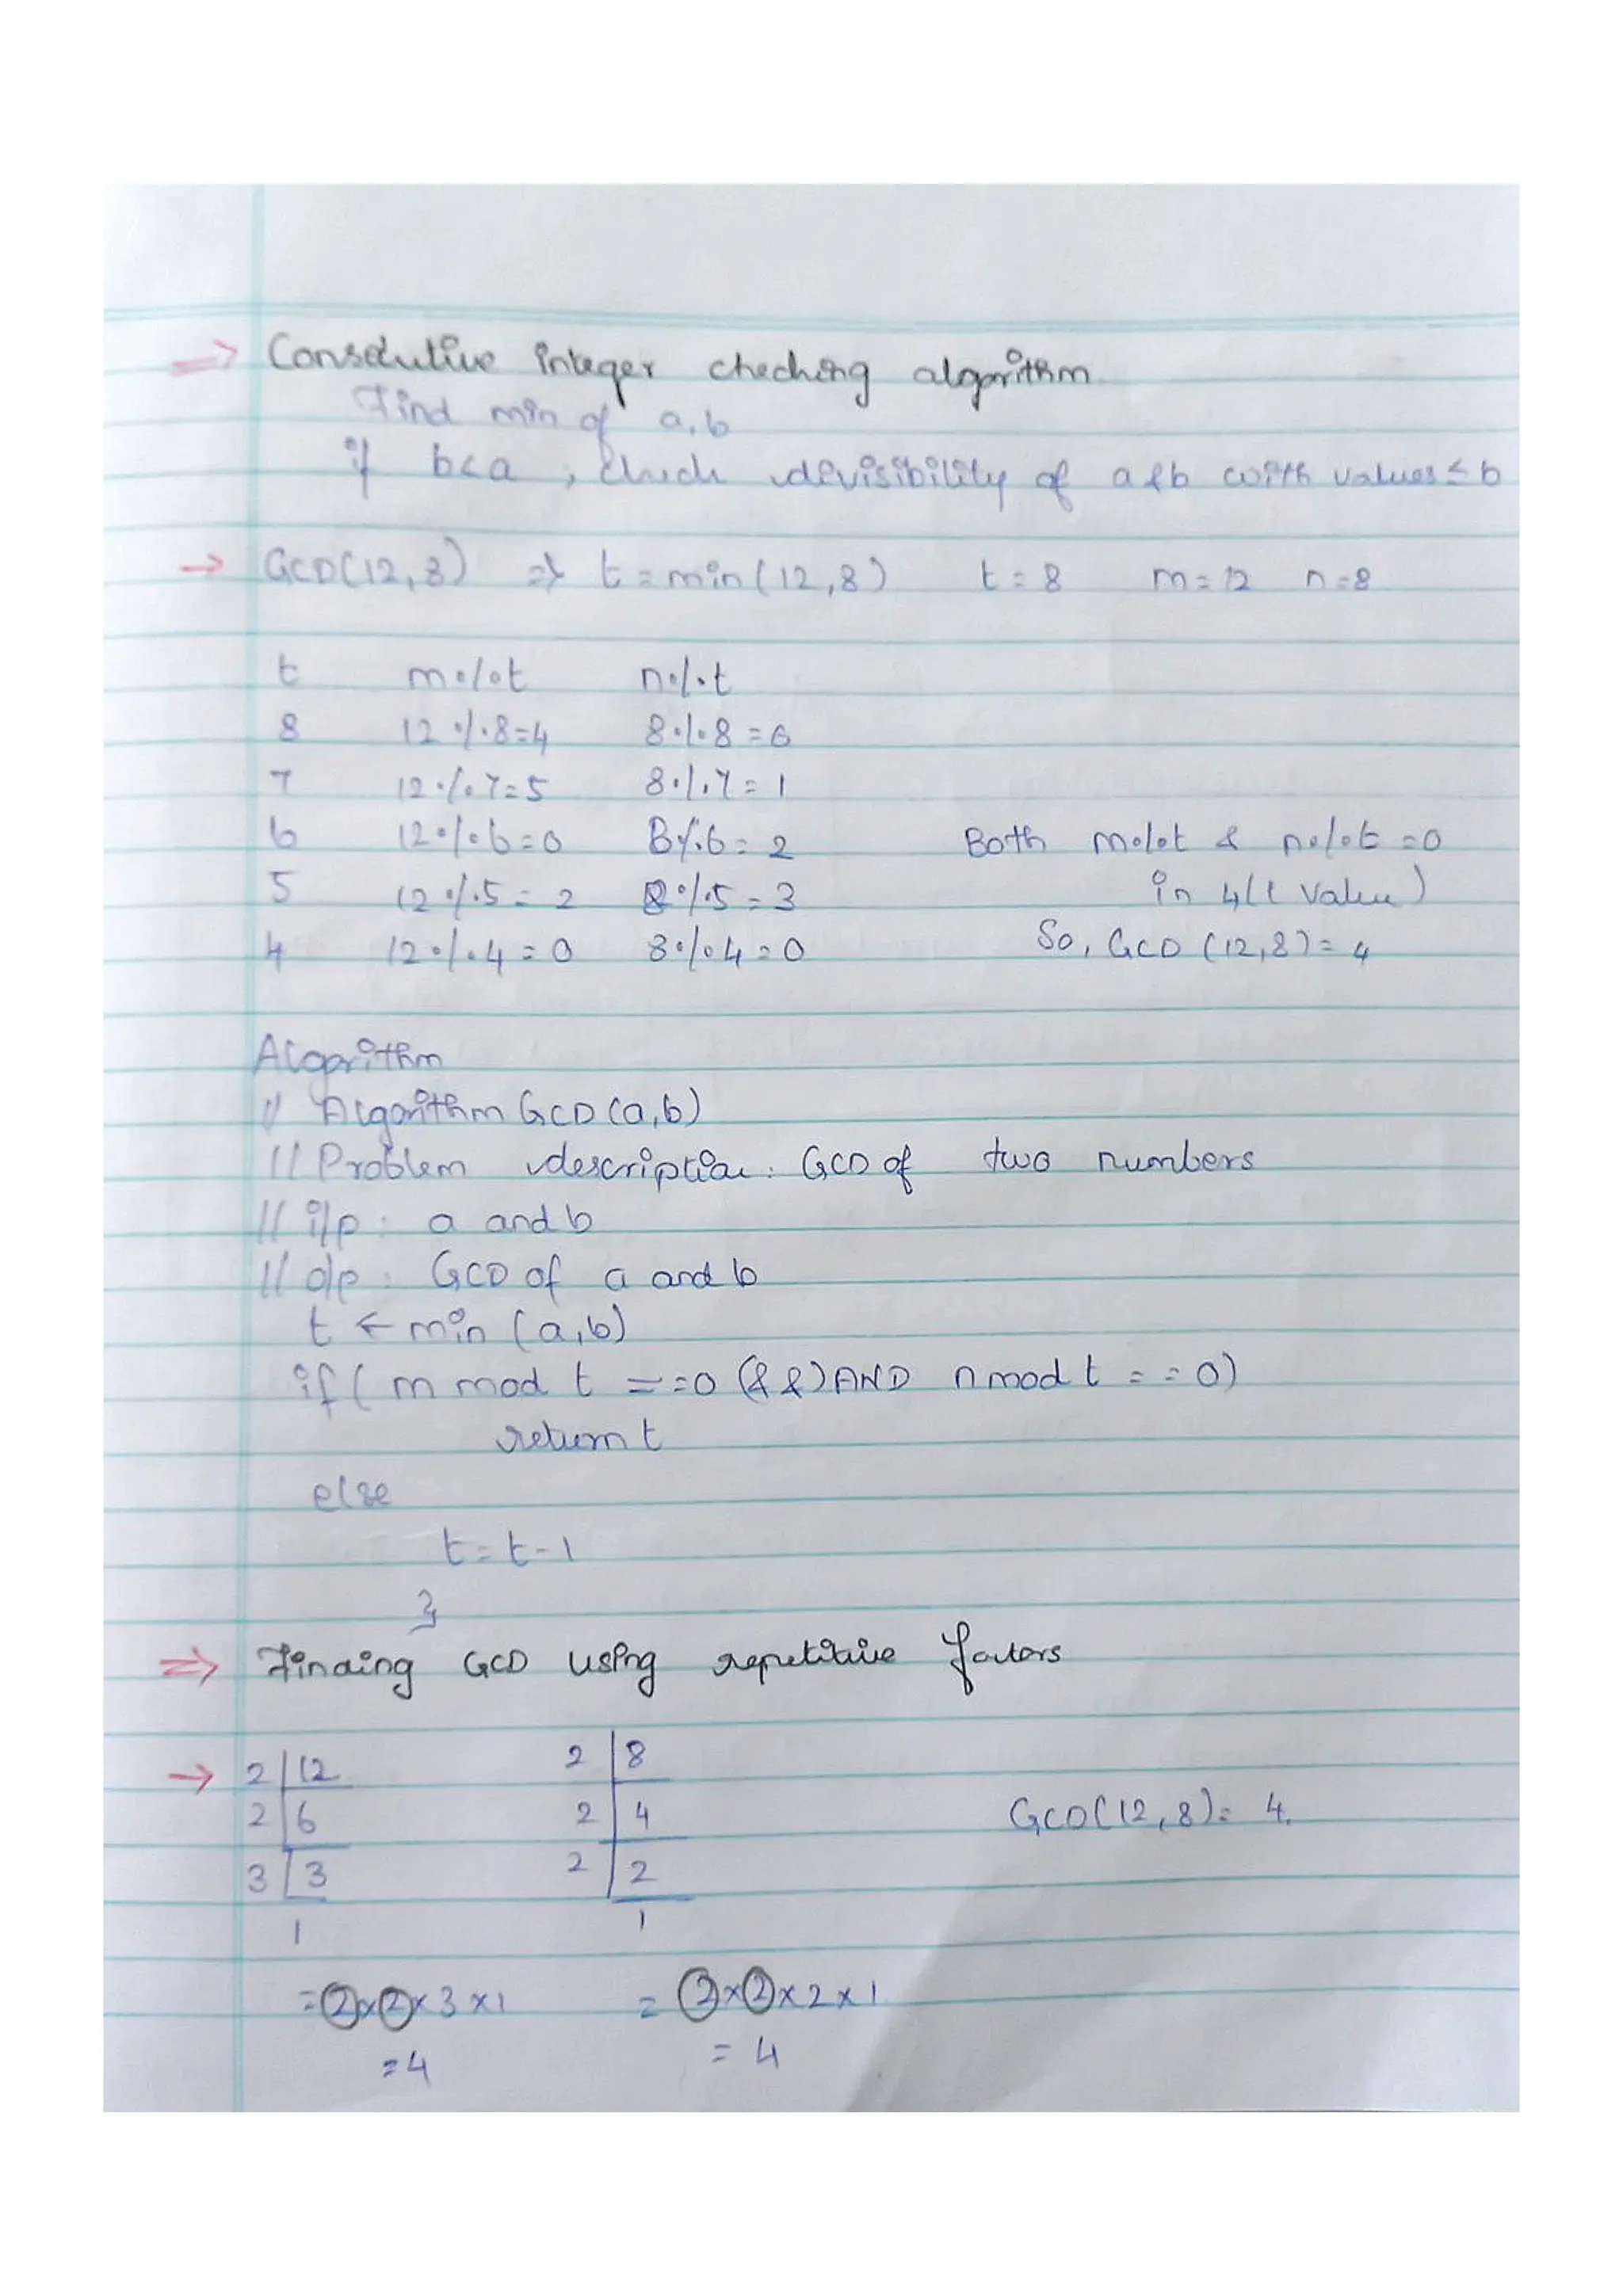 => Consecutive integer checking algorithm
Find min of a,b
if b<a , check divisibility of a & b with values ≤ b
→ GCD(12,8) => t = min(12,8) t = 8 m = 12 n = 8
t m%t n%t
8 12%8=4 8%8=0
7 12%7=5 8%7=1
6 12%6=0 8%6=2 Both m%t & n%t =0
5 12%5=2 8%5=3 in 4(t value)
4 12%4=0 8%4=0 So, GCD (12,8)= 4
Algorithm
// Algorithm GCD (a,b)
// Problem description: GCD of two numbers
// i/p : a and b
// o/p : GCD of a and b
t ← min (a,b)
if ( m mod t ==0 (&&) AND n mod t == 0)
return t
else
t = t-1
}
=> Finding GCD using repetitive factors
→ 2 | 12 2 | 8
2 | 6 2 | 4 GCD(12,8)= 4.
3 | 3 2 | 2
1 1
= 2×2×3×1 = 2×2×2×1
=4 = 4